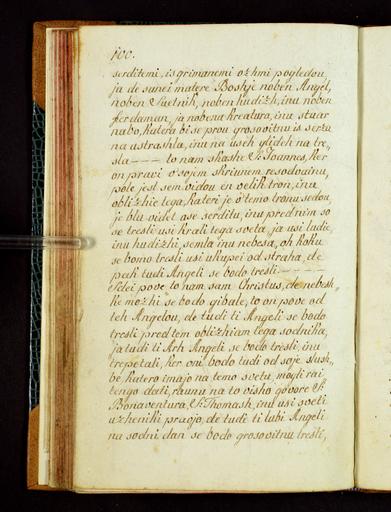 100.
serditemi, is grimanemi ozhmi pogledou,
ja de sunei matere Boshje noben Angel,
noben Suetnik, noben hudizh, inu noben
ferdaman, ja nobena kreatura, inu stuar
na bo, katera bi se prou grosovitnu is serza
na ustrashla, inu na useh glideh na tre,
sla — — — to nam skashe S. Joannes, ker
on pravi v sojem skriunem resodevainu,
pole jest sem vidou en velik tron, inu
oblizhie tega, kateri je v temo tronu sedou,
je blu videt ose serditu, inu pred nim so
se tresli usi krali tega sveta, ja usi ludie,
inu hudizhi, semla inu nebesa, oh koku
se bomo tresli usi ukupei od straha, de
pak tudi Angeli se bodo tresli — — — —
Selei pove to nam sam Christus, de nebesh,,
ke mozhi se bodo gibale, to on pove od
teh Angelou, de tudi ti Angeli se bodo
tresli pred tem oblizhiam tega sodnika,
ja tudi ti Arh Angeli se bodo tresli, inu
trepetali, ker oni bodo tudi od soje slush,
be, katero imajo na temo svetu, mogli rai,
tengo dati, raunu na to visho govore S.
Bonaventura, S. Thomash, inu usi sveti
uzheniki pravjo, de tudi ti lubi Angeli
na sodni dan se bodo grosovitnu tresli,